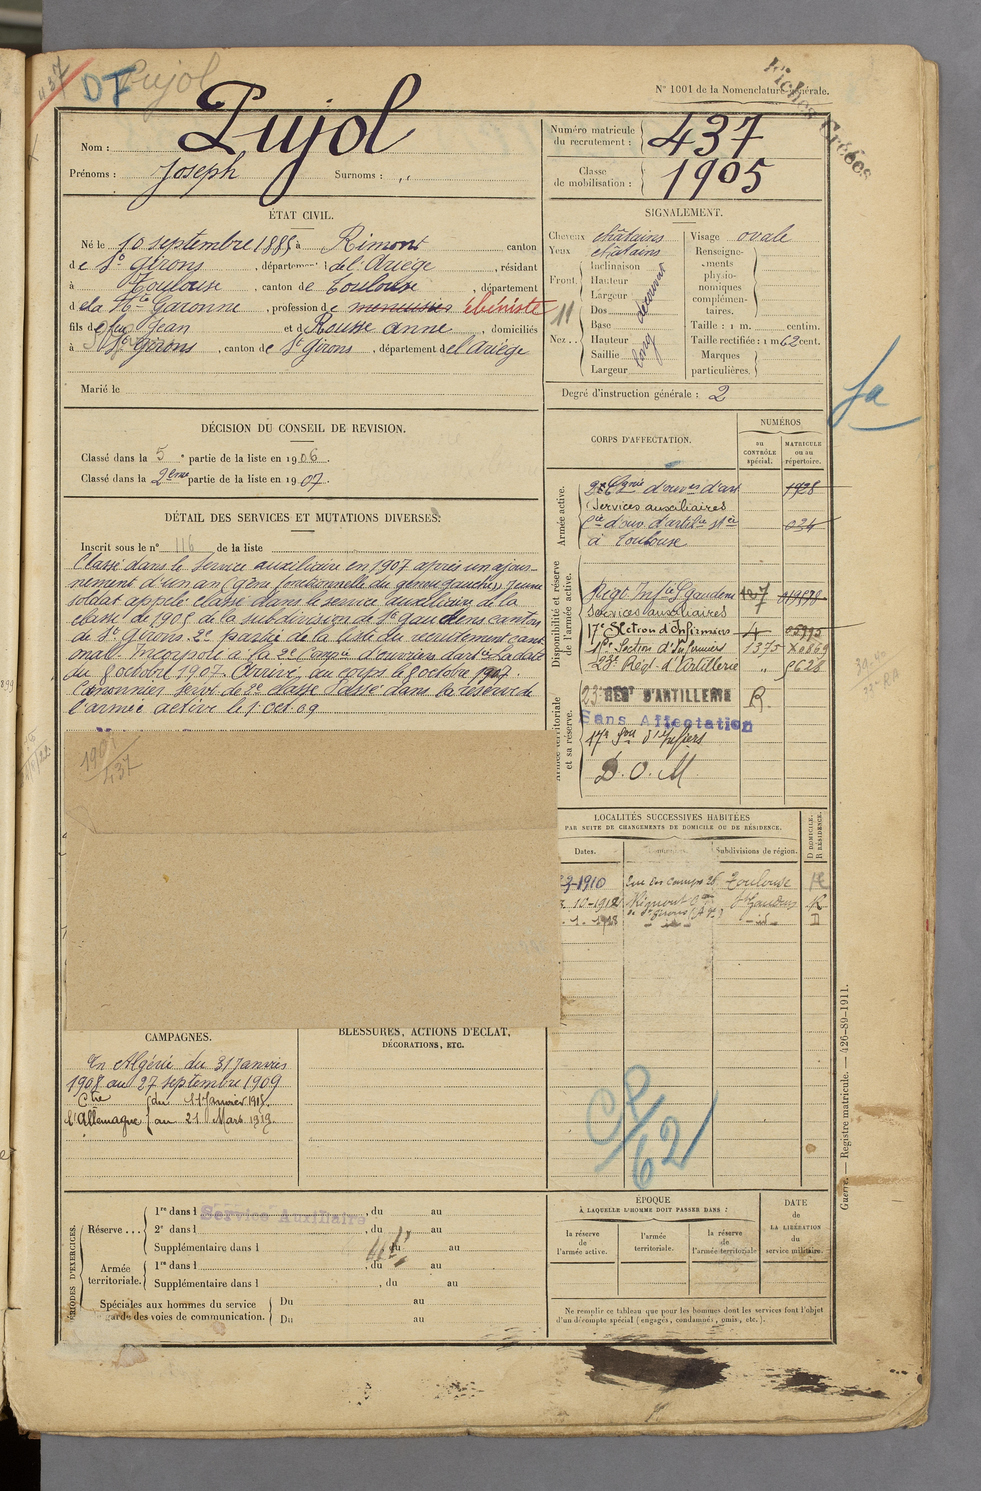 437
DF
Pujol
N° 1001 de la Nomenclature générale.
Fiches Créées
Nom : Pujol
Prénoms : Joseph Surnoms : "
Numéro matricule du recrutement : 437
Classe de mobilisation : 1905
ÉTAT CIVIL.
Né le 10 septembre 1885 à Rimont canton
de St Girons, département de l'Ariège, résidant
à Toulouse, canton de Toulouse, département
de la Hte Garonne, profession de menuisier ébéniste
fils de feu Jean et de Rousse Anne, domiciliés
à St Girons, canton de St Girons, département de l'Ariège
Marié le
SIGNALEMENT.
Cheveux châtains
Yeux châtains
Front. Inclinaison
Hauteur
Largeur
découvert
Nez.. Dos
Base
Hauteur
Saillie
Largeur
long
11
Visage ovale
Renseignements physionomiques complémentaires.
Taille : 1 m. centim.
Taille rectifiée : 1 m 62 cent.
Marques particulières.
Degré d'instruction générale : 2
DÉCISION DU CONSEIL DE REVISION.
Classé dans la 5e partie de la liste en 1906.
Classé dans la 2eme partie de la liste en 1907.
DÉTAIL DES SERVICES ET MUTATIONS DIVERSES.
Inscrit sous le n° 116 de la liste
Classé dans le Service auxiliaire en 1907 après un ajour-
nement d'un an (gêne fonctionnelle du genou gauche). Jeune
soldat appelé classé dans le service auxiliaire de la
classe de 1905 de la subdivision de St Gaudens canton
de St Girons. 2e partie de la liste du recrutement cant
onal. Incorporé à la 2e Compie d'ouvriers d'artie à la date
du 8 octobre 1907. Arrivé au corps le 8 octobre 1907.
Canonnier servt de 2e classe. Passé dans la réserve de
l'armée active le 1 oct. 09
1905
437
CORPS D'AFFECTATION.
NUMÉROS
au CONTRÔLE spécial.
MATRICULE ou au répertoire.
Armée active.
2e Cgnie d'ouvrs d'art 1928
Services auxiliaires
Cie d'ouv. d'artie 024
à Toulouse
Disponibilité et réserve de l'armée active.
Regt Infie St Gaudens
Services auxiliaires
17e Section d'Infirmiers 4
Section d'Infirmiers 1375
23e Regt d'Artillerie "
Armée territoriale et sa réserve.
23e REGt D'ARTILLERIE R.
Sans Affectation
17e Son d'Infiers
D. O. M
LOCALITÉS SUCCESSIVES HABITÉES
PAR SUITE DE CHANGEMENTS DE DOMICILE OU DE RÉSIDENCE.
Dates. Communes. Subdivisions de région. D DOMICILE. R RÉSIDENCE.
-1910 Toulouse R
10-1912 Rimont St Gaudens R
1-1913 " " " - id - D
CAMPAGNES.
En Algérie du 31 Janvier
1908 au 27 septembre 1909
Ctre du 11 Janvier 1915
l'Allemagne au 21 Mars 1919.
BLESSURES, ACTIONS D'ÉCLAT,
DÉCORATIONS, ETC.
CP/62
PÉRIODES D'EXERCICES.
Réserve... 1re dans l Service Auxiliaire, du au
2e dans l , du au
Supplémentaire dans l , du au
Armée territoriale. 1re dans l , du au
Supplémentaire dans l , du au
Spéciales aux hommes du service de garde des voies de communication. Du au
Du au
ÉPOQUE
À LAQUELLE L'HOMME DOIT PASSER DANS :
la réserve de l'armée active.
l'armée territoriale.
la réserve de l'armée territoriale
DATE de LA LIBÉRATION du service militaire.
Ne remplir ce tableau que pour les hommes dont les services font l'objet
d'un décompte spécial (engagés, condamnés, omis, etc.).
Guerre. — Registre matricule. — 426-89-1911.